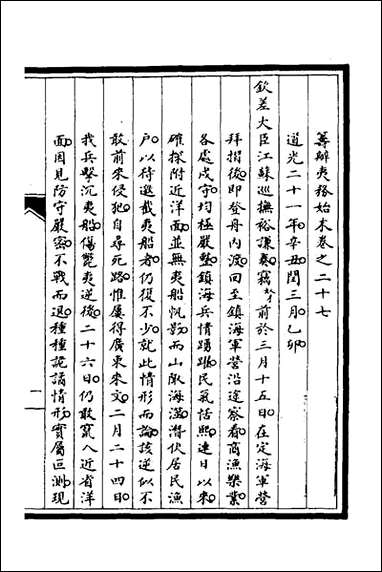 籌辦夷務始末卷之二十七
道光二十一年辛丑閏三月乙卯
欽差大臣江蘇巡撫裕謙奏竊奴才前於三月十五日在定海軍營
拜摺後即登舟內渡回至鎮海軍營沿途察看商漁樂業
各處戍守均極嚴整鎮海兵情踴躍民氣恬熙連日以來
確探附近洋面並無夷船帆影而山陬海澨潛伏居民漁
戶以待邀截夷船者仍復不少就此情形而論該逆似不
敢前來侵犯自尋死路惟屢得廣東來文二月二十四日
我兵擊沉夷船傷斃夷逆後二十六日仍敢竄入近省洋
面因見防守嚴密不戰而退種種詭譎情形實屬叵測現
一